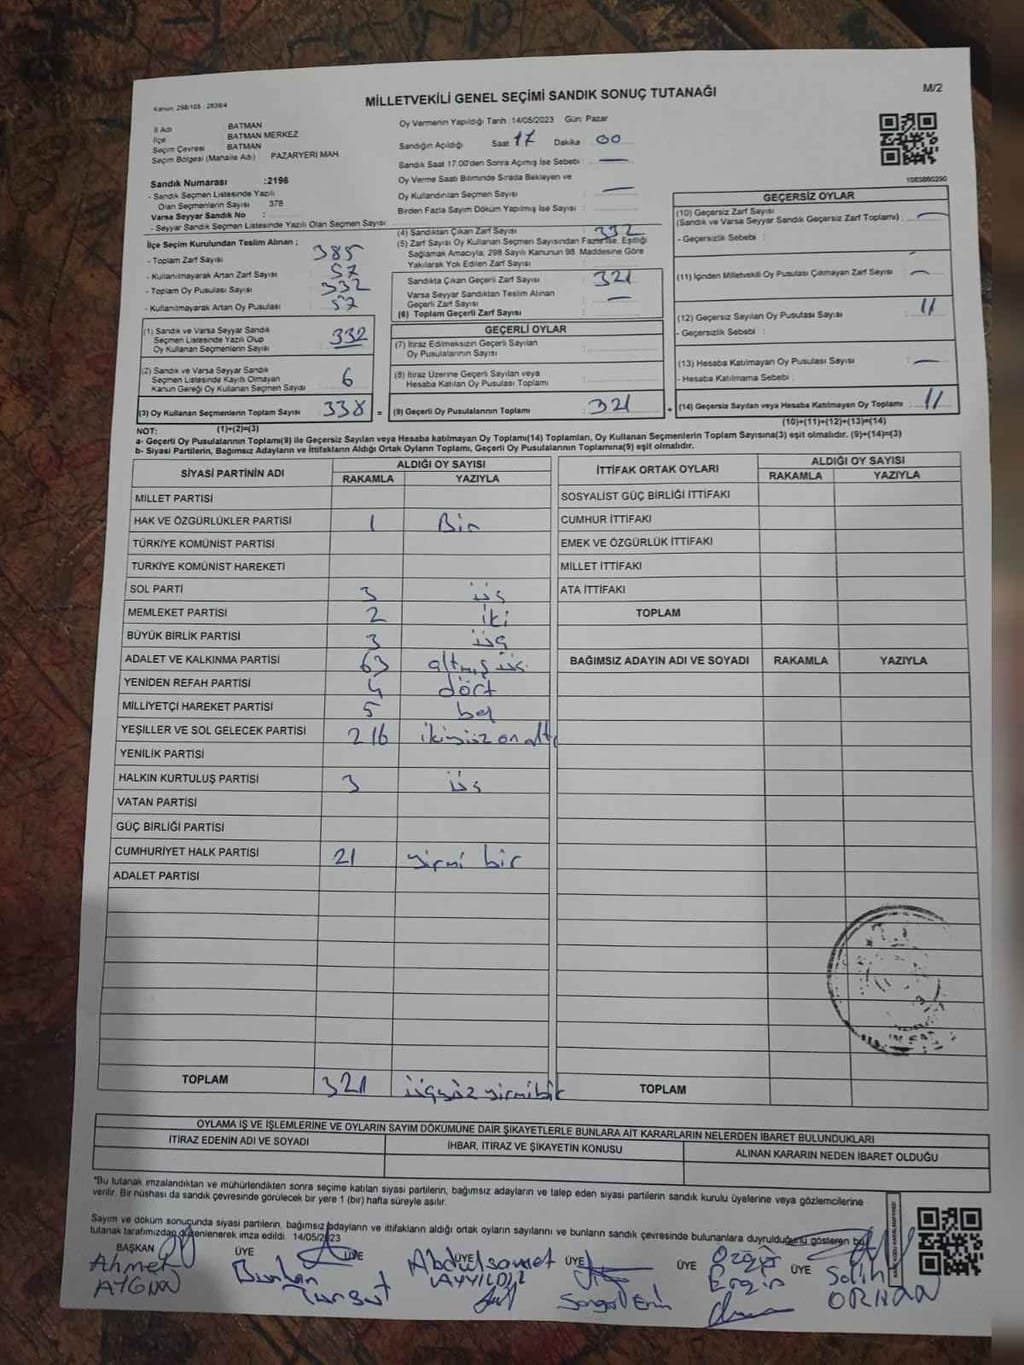 Kanun: 298/105 ; 2839/4
MİLLETVEKİLİ GENEL SEÇİMİ SANDIK SONUÇ TUTANAĞI
M/2
İl Adı BATMAN
İlçe BATMAN MERKEZ
Seçim Çevresi BATMAN
Seçim Bölgesi (Mahalle Adı) PAZARYERİ MAH.
Sandık Numarası :2196
- Sandık Seçmen Listesinde Yazılı
Olan Seçmenlerin Sayısı 378
Varsa Seyyar Sandık No :
- Seyyar Sandık Seçmen Listesinde Yazılı Olan Seçmen Sayısı
Oy Vermenin Yapıldığı Tarih 14/05/2023 Gün: Pazar
Sandığın Açıldığı Saat 17 Dakika 00
Sandık Saat 17:00'den Sonra Açılmış İse Sebebi : —
Oy Verme Saati Bitiminde Sırada Bekleyen ve
Oy Kullandırılan Seçmen Sayısı : —
Birden Fazla Sayım Döküm Yapılmış İse Sayısı :
İlçe Seçim Kurulundan Teslim Alınan ;
- Toplam Zarf Sayısı 385
- Kullanılmayarak Artan Zarf Sayısı : 57
- Toplam Oy Pusulası Sayısı : 332
- Kullanılmayarak Artan Oy Pusulası : 57
(1) Sandık ve Varsa Seyyar Sandık
Seçmen Listesinde Yazılı Olup
Oy Kullanan Seçmenlerin Sayısı 332
(2) Sandık ve Varsa Seyyar Sandık
Seçmen Listesinde Kayıtlı Olmayan
Kanun Gereği Oy Kullanan Seçmen Sayısı 6
(3) Oy Kullanan Seçmenlerin Toplam Sayısı 338 =
(4) Sandıktan Çıkan Zarf Sayısı : 332
(5) Zarf Sayısı Oy Kullanan Seçmen Sayısından Fazla ise, Eşitliği
Sağlamak Amacıyla, 298 Sayılı Kanunun 98. Maddesine Göre
Yakılarak Yok Edilen Zarf Sayısı :
Sandıkta Çıkan Geçerli Zarf Sayısı : 321
Varsa Seyyar Sandıktan Teslim Alınan
Geçerli Zarf Sayısı : —
(6) Toplam Geçerli Zarf Sayısı :
GEÇERLİ OYLAR
(7) İtiraz Edilmeksizin Geçerli Sayılan
Oy Pusulalarının Sayısı :
(8) İtiraz Üzerine Geçerli Sayılan veya
Hesaba Katılan Oy Pusulası Toplamı :
(9) Geçerli Oy Pusulalarının Toplamı : 321 +
GEÇERSİZ OYLAR
(10) Geçersiz Zarf Sayısı
(Sandık ve Varsa Seyyar Sandık Geçersiz Zarf Toplamı) : —
- Geçersizlik Sebebi :
(11) İçinden Milletvekili Oy Pusulası Çıkmayan Zarf Sayısı : —
(12) Geçersiz Sayılan Oy Pusulası Sayısı : 11
- Geçersizlik Sebebi :
(13) Hesaba Katılmayan Oy Pusulası Sayısı : —
- Hesaba Katılmama Sebebi :
(14) Geçersiz Sayılan veya Hesaba Katılmayan Oy Toplamı : 11
NOT: (1)+(2)=(3) (10)+(11)+(12)+(13)=(14)
a- Geçerli Oy Pusulalarının Toplamı(9) ile Geçersiz Sayılan veya Hesaba katılmayan Oy Toplamı(14) Toplamları, Oy Kullanan Seçmenlerin Toplam Sayısına(3) eşit olmalıdır. (9)+(14)=(3)
b- Siyasi Partilerin, Bağımsız Adayların ve İttifakların Aldığı Ortak Oyların Toplamı, Geçerli Oy Pusulalarının Toplamına(9) eşit olmalıdır.
SİYASİ PARTİNİN ADI ALDIĞI OY SAYISI
RAKAMLA YAZIYLA
MİLLET PARTİSİ
HAK VE ÖZGÜRLÜKLER PARTİSİ 1 Bir
TÜRKİYE KOMÜNİST PARTİSİ
TÜRKİYE KOMÜNİST HAREKETİ
SOL PARTİ 3 üç
MEMLEKET PARTİSİ 2 iki
BÜYÜK BİRLİK PARTİSİ 3 üç
ADALET VE KALKINMA PARTİSİ 63 altmış üç
YENİDEN REFAH PARTİSİ 4 dört
MİLLİYETÇİ HAREKET PARTİSİ 5 beş
YEŞİLLER VE SOL GELECEK PARTİSİ 216 ikiyüz on altı
YENİLİK PARTİSİ
HALKIN KURTULUŞ PARTİSİ 3 üç
VATAN PARTİSİ
GÜÇ BİRLİĞİ PARTİSİ
CUMHURİYET HALK PARTİSİ 21 yirmi bir
ADALET PARTİSİ
TOPLAM 321 üçyüz yirmi bir
İTTİFAK ORTAK OYLARI ALDIĞI OY SAYISI
RAKAMLA YAZIYLA
SOSYALİST GÜÇ BİRLİĞİ İTTİFAKI
CUMHUR İTTİFAKI
EMEK VE ÖZGÜRLÜK İTTİFAKI
MİLLET İTTİFAKI
ATA İTTİFAKI
TOPLAM
BAĞIMSIZ ADAYIN ADI VE SOYADI RAKAMLA YAZIYLA
TOPLAM
OYLAMA İŞ VE İŞLEMLERİNE VE OYLARIN SAYIM DÖKÜMÜNE DAİR ŞİKAYETLERLE BUNLARA AİT KARARLARIN NELERDEN İBARET BULUNDUKLARI
İTİRAZ EDENİN ADI VE SOYADI İHBAR, İTİRAZ VE ŞİKAYETİN KONUSU ALINAN KARARIN NEDEN İBARET OLDUĞU
*Bu tutanak imzalandıktan ve mühürlendikten sonra seçime katılan siyasi partilerin, bağımsız adayların ve talep eden siyasi partilerin sandık kurulu üyelerine veya gözlemcilerine
verilir. Bir nüshası da sandık çevresinde görülecek bir yere 1 (bir) hafta süreyle asılır.
Sayım ve döküm sonucunda siyasi partilerin, bağımsız adayların ve ittifakların aldığı ortak oyların sayılarını ve bunların sandık çevresinde bulunanlara duyrulduğunu gösteren bu
tutanak tarafımızdan düzenlenerek imza edildi. 14/05/2023
BAŞKAN ÜYE ÜYE ÜYE ÜYE ÜYE ÜYE
Ahmet AYGÜN
Abdülsamet
Songül Erin
Özgür Ergin
Salih ORHAN